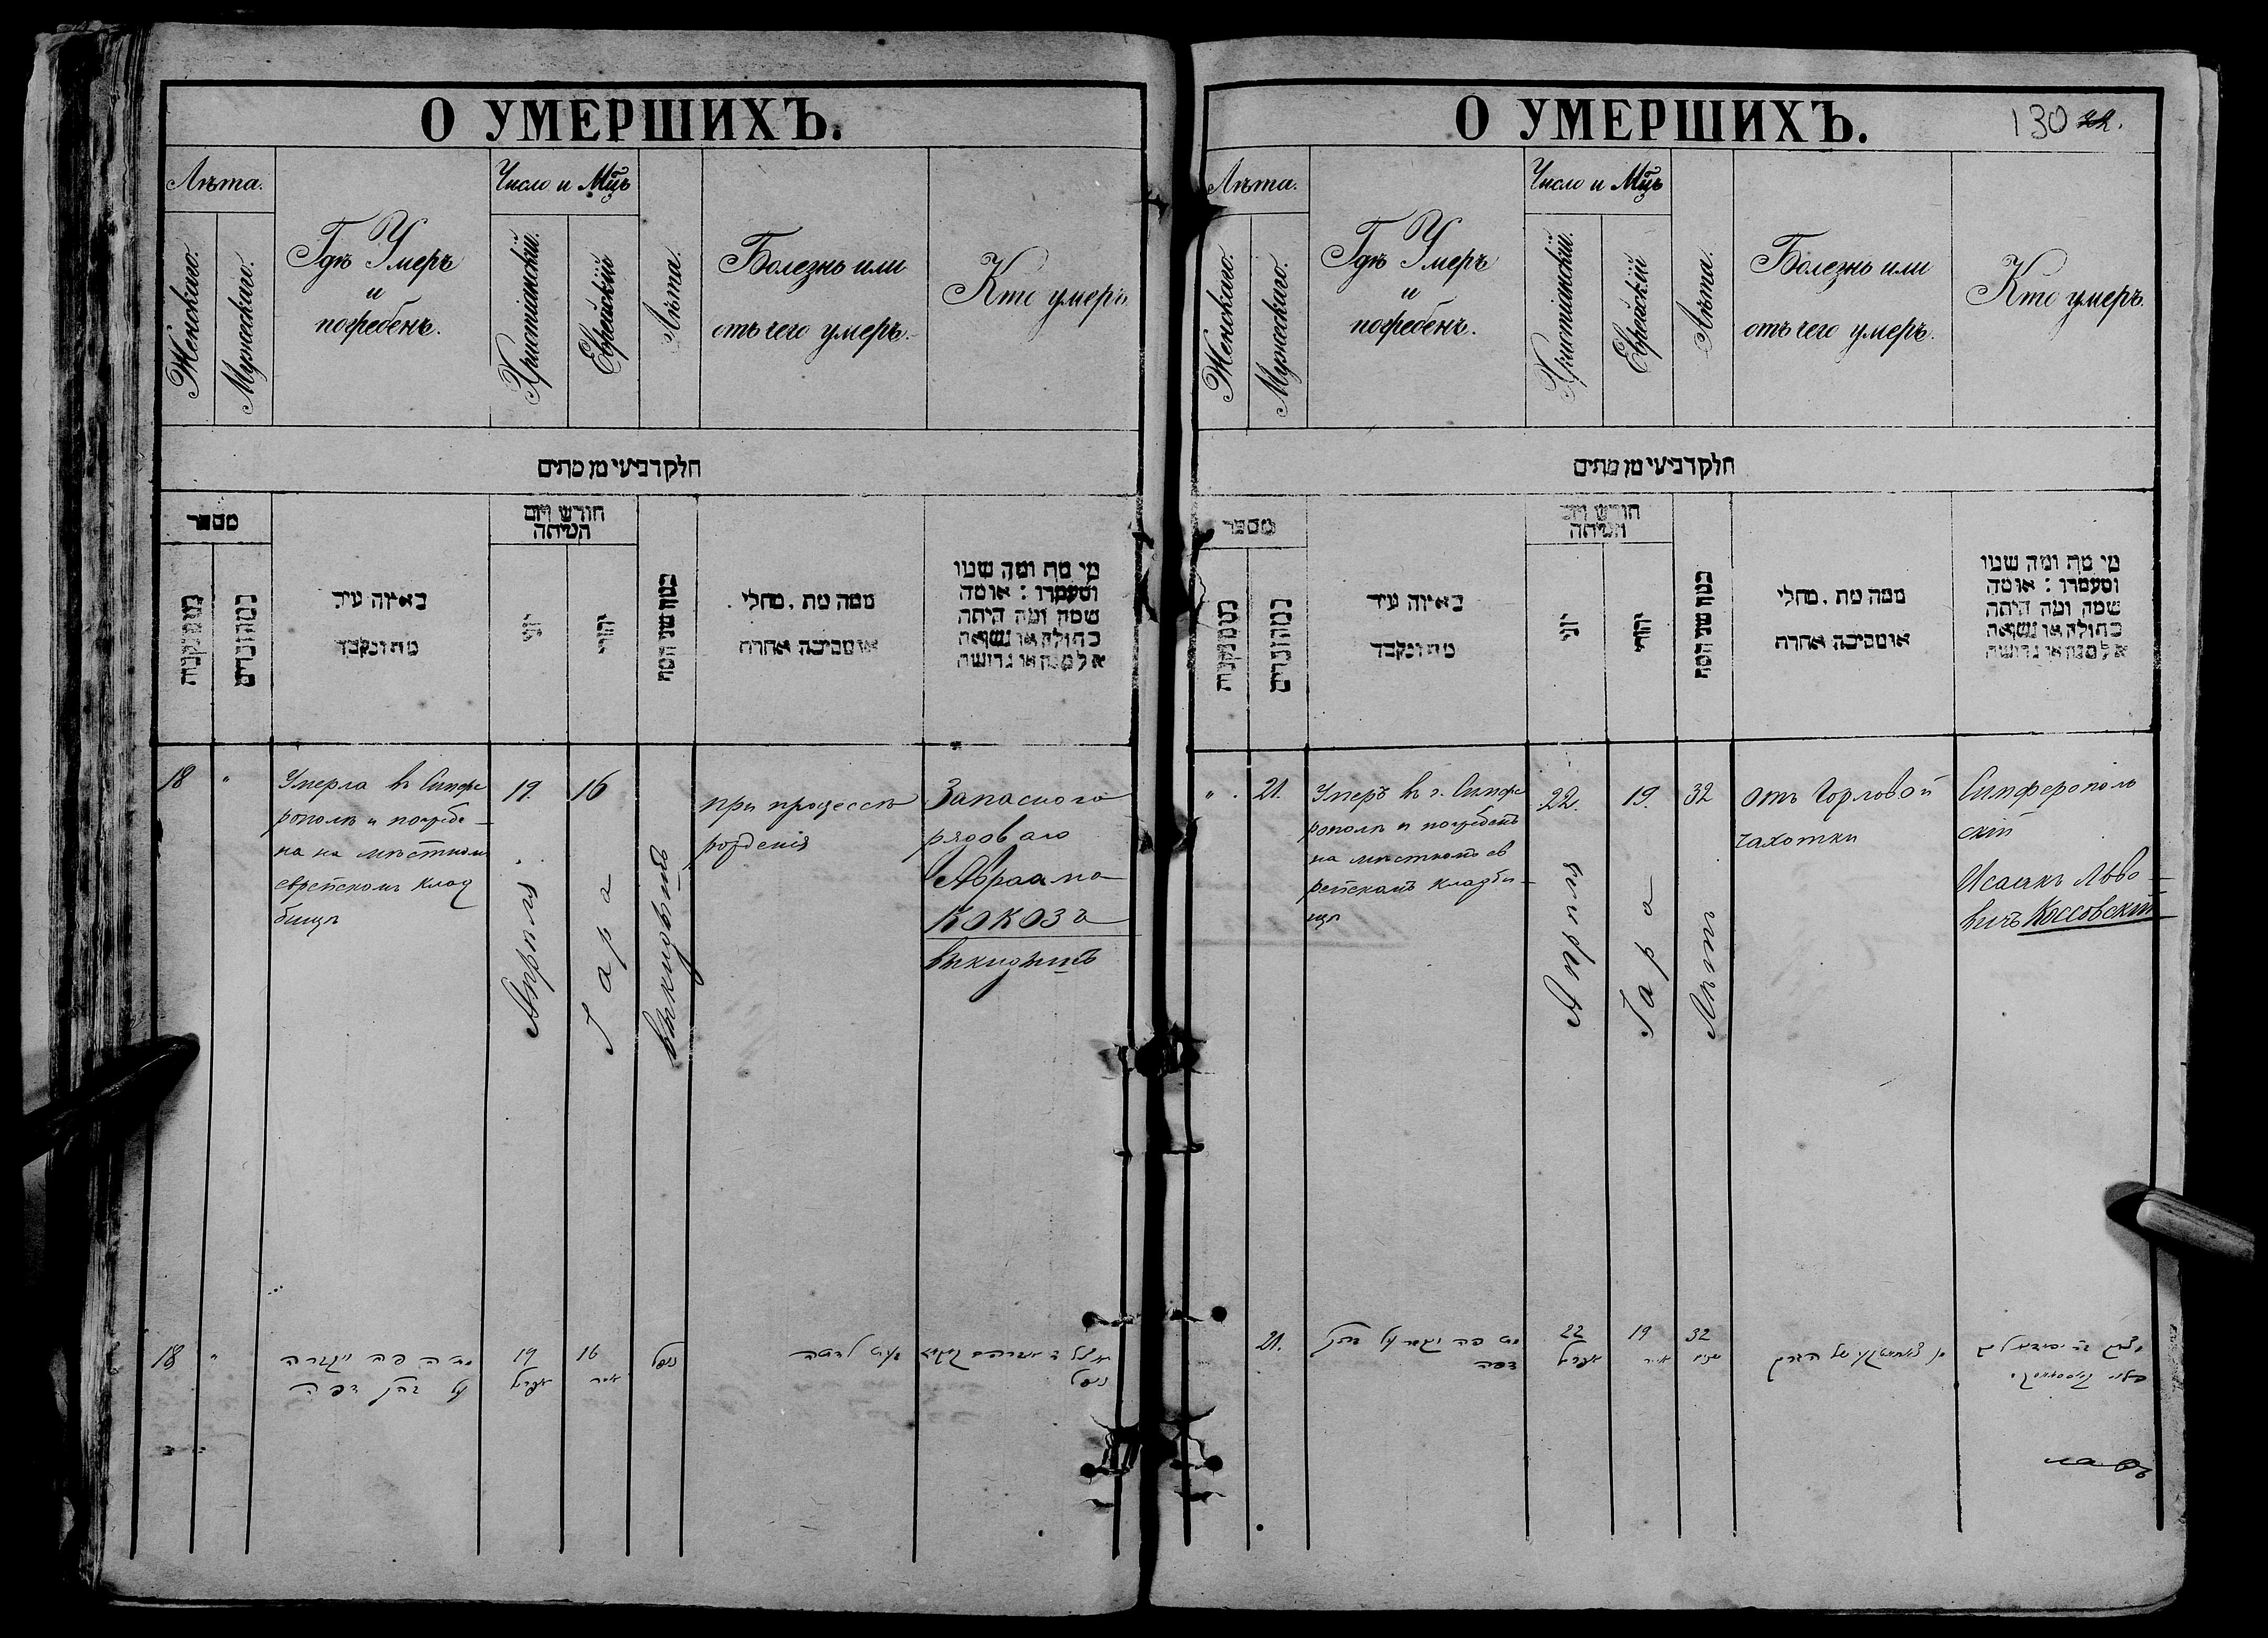 О УМЕРШИХЪ.
Лѣта.
Женскаго.
Мужескаго.
Гдѣ Умеръ
и
погребенъ.
Число и Мцъ
Христіанскій.
Еврейскій
Лѣта.
Болезнь или
отъ чего умеръ.
Кто умеръ.
חלק רביעי מן מתים
מספר
באיזה עיר
מת ונקבר
חודש ויום
המיתה
יוני
יהודי
ממה מת . מחלי
או מסיבה אחרת
מי מת ומה שמו
ומעמדו : או מה
שמה ומה היתה
בתולה או נשואה
אלמנה או גרושה
18
"
Умерла въ Симфе
рополѣ и погребе-
на на мѣстномъ
еврейскомъ клад
бищѣ
19.
Апрѣля
16
Іара
выкидышъ
при процессѣ
рожденія
Запаснаго
рядоваго
Авраама
Кокоза
выкидышъ
18
"
19
אפריל
16
אייר
נפל
נפל
О УМЕРШИХЪ.
130
Лѣта.
Женскаго.
Мужескаго.
Гдѣ Умеръ
и
погребенъ.
Число и Мцъ
Христіанскій.
Еврейскій
Лѣта.
Болезнь или
отъ чего умеръ.
Кто умеръ.
חלק רביעי מן מתים
מספר
באיזה עיר
מת ונקבר
חודש ויום
המיתה
יוני
יהודי
ממה מת . מחלי
או מסיבה אחרת
מי מת ומה שמו
ומעמדו : או מה
שמה ומה היתה
בתולה או נשואה
אלמנה או גרושה
"
21.
Умеръ въ г. Симфе
рополѣ и погребенъ
на мѣстномъ ев
рейскомъ кладби-
щѣ
22.
Апрѣля
19.
Іара
32
Лѣтъ
отъ горловой
чахотки
Симферополь
скій
Исаакъ Льво-
вичъ Коссовскій
21.
22
אפריל
19
אייר
32